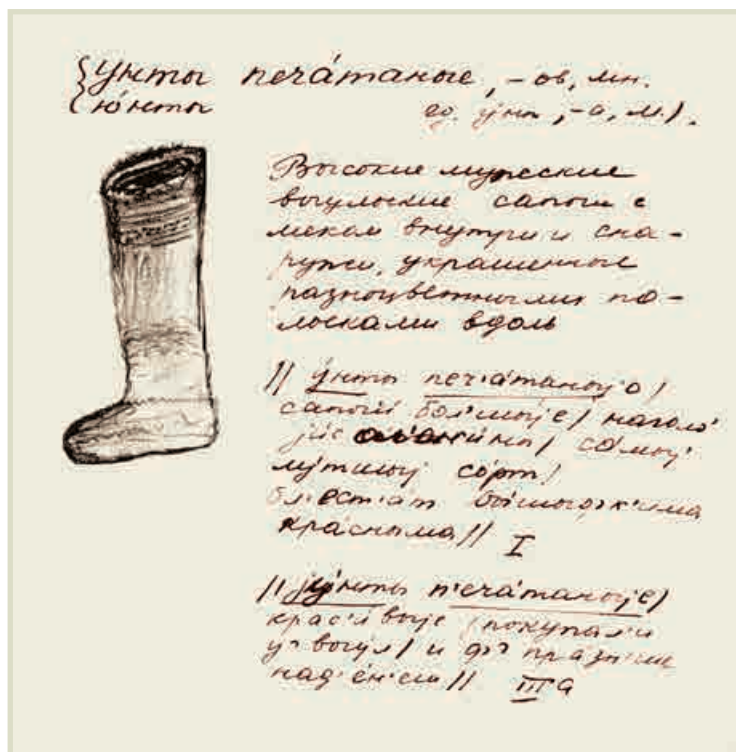 { У́нты печа́таные, -ов, мн.
{ ю́нты ед. у́нт, -а, м.).
Высокие мужские
вогульские сапоги с
мехом внутри и сна-
ружи, украшенные
разноцветными по-
лосками вдоль
// у́нты печ'а́таныjе/
сапоги́ бол'шыjе/
са́моj
лу́тшоj со́рт/
бл'ест'а́т
кра́сныма // I
// jу́нты п'еча́таныjе/
крас'и́выjе / покупа́ли
у вогу́л / и праз'н'ик
над'ен'еш // IIIа